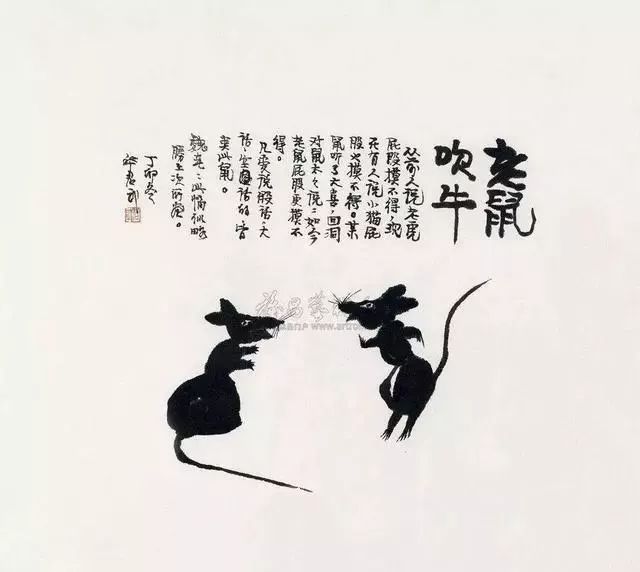 老鼠
吹牛
从前人说老虎
屁股摸不得，现
在有人说小猫屁
股也摸不得。某
鼠听了大喜，回洞
对鼠太太说：如今
老鼠屁股更摸不
得。
凡爱说假话、大
话、空话的，皆
类此鼠。
此幅似略
胜上次所画。
丁卯冬
www.artro